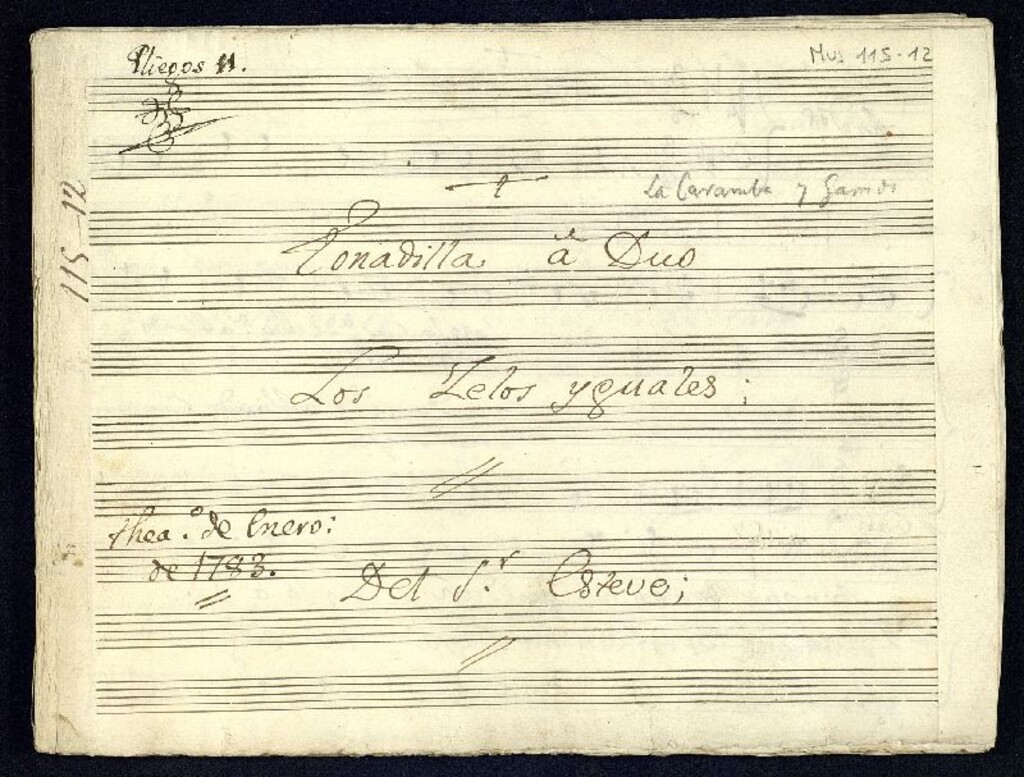 Pliegos 11.
Mus 115-12
115-12
La Caramba y Garrido
Tonadilla à Duo
Los Zelos yguales;
thea.º de Enero:
de 1783.
Del S.r Esteve;